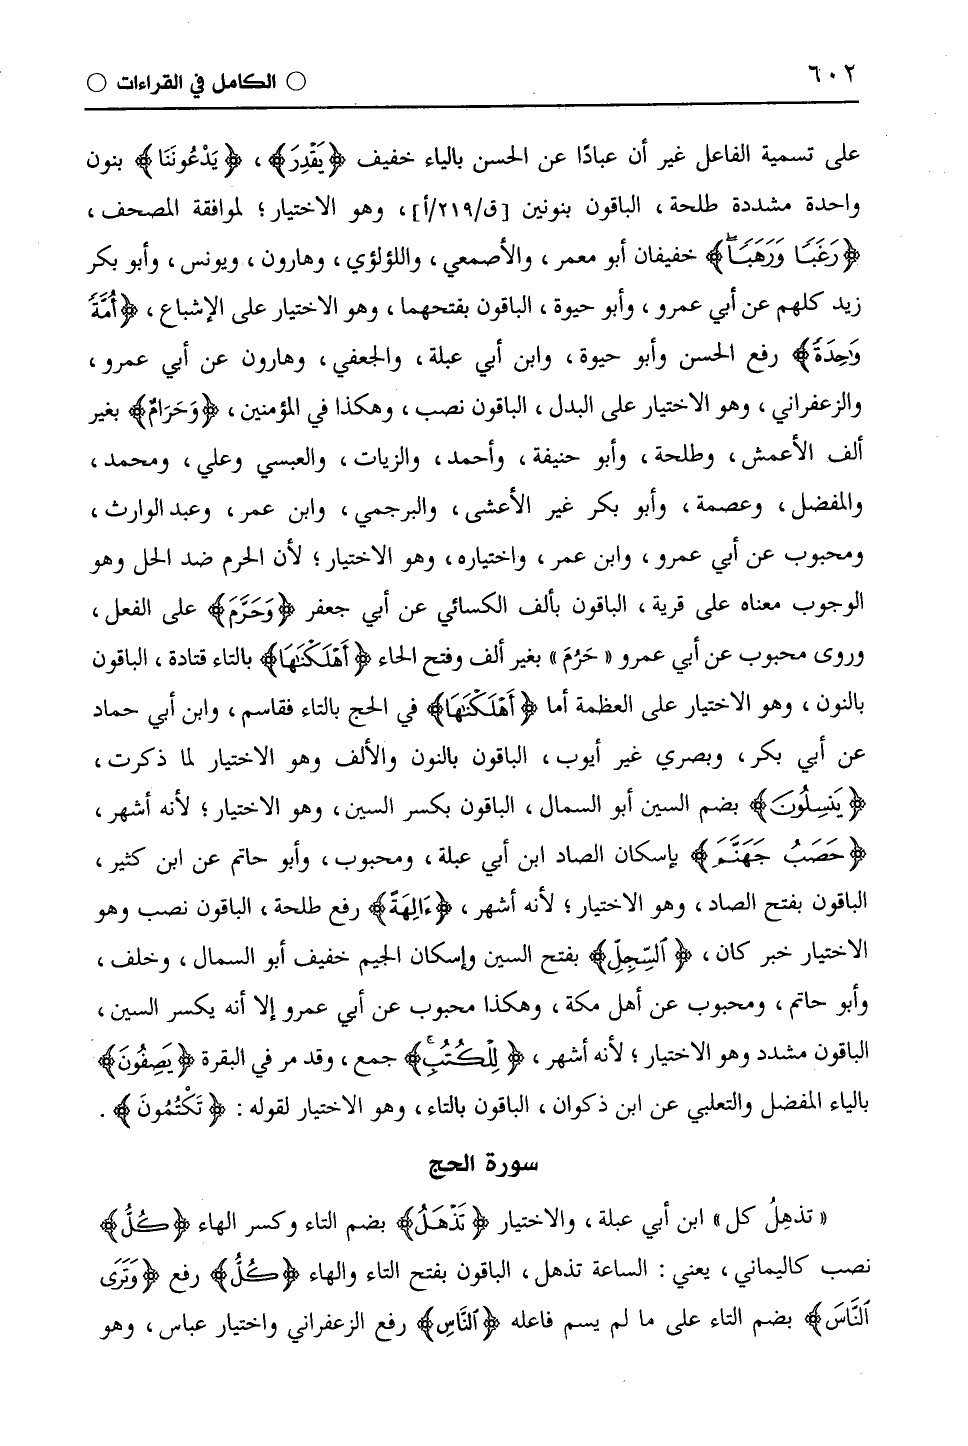 ٦٠٢
○ الكامل في القراءات ○
على تسمية الفاعل غير أن عبادًا عن الحسن بالياء خفيف ﴿يَقْدِرَ﴾ ، ﴿يَدْعُونَنَا﴾ بنون
واحدة مشددة طلحة ، الباقون بنونين [ق/٢١٩/أ] ، وهو الاختيار ؛ لموافقة المصحف ،
﴿رَغَبًا وَرَهَبًا﴾ خفيفان أبو معمر ، والأصمعي ، واللؤلؤي ، وهارون ، ويونس ، وأبو بكر
زيد كلهم عن أبي عمرو ، وأبو حيوة ، الباقون بفتحهما ، وهو الاختيار على الإشباع ، ﴿أُمَّةً
وَٰحِدَةً﴾ رفع الحسن وأبو حيوة ، وابن أبي عبلة ، والجعفي ، وهارون عن أبي عمرو ،
والزعفراني ، وهو الاختيار على البدل ، الباقون نصب ، وهكذا في المؤمنين ، ﴿وَحَرَامٌ﴾ بغير
ألف الأعمش ، وطلحة ، وأبو حنيفة ، وأحمد ، والزيات ، والعبسي وعلي ، ومحمد ،
والمفضل ، وعصمة ، وأبو بكر غير الأعشى ، والبرجمي ، وابن عمر ، وعبد الوارث ،
ومحبوب عن أبي عمرو ، وابن عمر ، واختياره ، وهو الاختيار ؛ لأن الحرم ضد الحل وهو
الوجوب معناه على قرية ، الباقون بألف الكسائي عن أبي جعفر ﴿وَحَرَّمَ﴾ على الفعل ،
وروى محبوب عن أبي عمرو « حَرُمَ » بغير ألف وفتح الحاء ﴿أَهْلَكْنَٰهَا﴾ بالتاء قتادة ، الباقون
بالنون ، وهو الاختيار على العظمة أما ﴿أَهْلَكْنَٰهَا﴾ في الحج بالتاء فقاسم ، وابن أبي حماد
عن أبي بكر ، وبصري غير أيوب ، الباقون بالنون والألف وهو الاختيار لما ذكرت ،
﴿يَنسِلُونَ﴾ بضم السين أبو السمال ، الباقون بكسر السين ، وهو الاختيار ؛ لأنه أشهر ،
﴿حَصَبُ جَهَنَّمَ﴾ بإسكان الصاد ابن أبي عبلة ، ومحبوب ، وأبو حاتم عن ابن كثير ،
الباقون بفتح الصاد ، وهو الاختيار ؛ لأنه أشهر ، ﴿ءَالِهَةً﴾ رفع طلحة ، الباقون نصب وهو
الاختيار خبر كان ، ﴿ٱلسِّجِلِّ﴾ بفتح السين وإسكان الجيم خفيف أبو السمال ، وخلف ،
وأبو حاتم ، ومحبوب عن أهل مكة ، وهكذا محبوب عن أبي عمرو إلا أنه يكسر السين ،
الباقون مشدد وهو الاختيار ؛ لأنه أشهر ، ﴿لِلْكُتُبِ﴾ جمع ، وقد مر في البقرة ﴿يَصِفُونَ﴾
بالياء المفضل والتعلبي عن ابن ذكوان ، الباقون بالتاء ، وهو الاختيار لقوله : ﴿تَكْتُمُونَ﴾ .
سورة الحج
« تذهِلُ كل » ابن أبي عبلة ، والاختيار ﴿تَذْهَلُ﴾ بضم التاء وكسر الهاء ﴿كُلُّ﴾
نصب كاليماني ، يعني : الساعة تذهل ، الباقون بفتح التاء والهاء ﴿كُلُّ﴾ رفع ﴿وَتَرَى
ٱلنَّاسَ﴾ بضم التاء على ما لم يسم فاعله ﴿ٱلنَّاسِ﴾ رفع الزعفراني واختيار عباس ، وهو